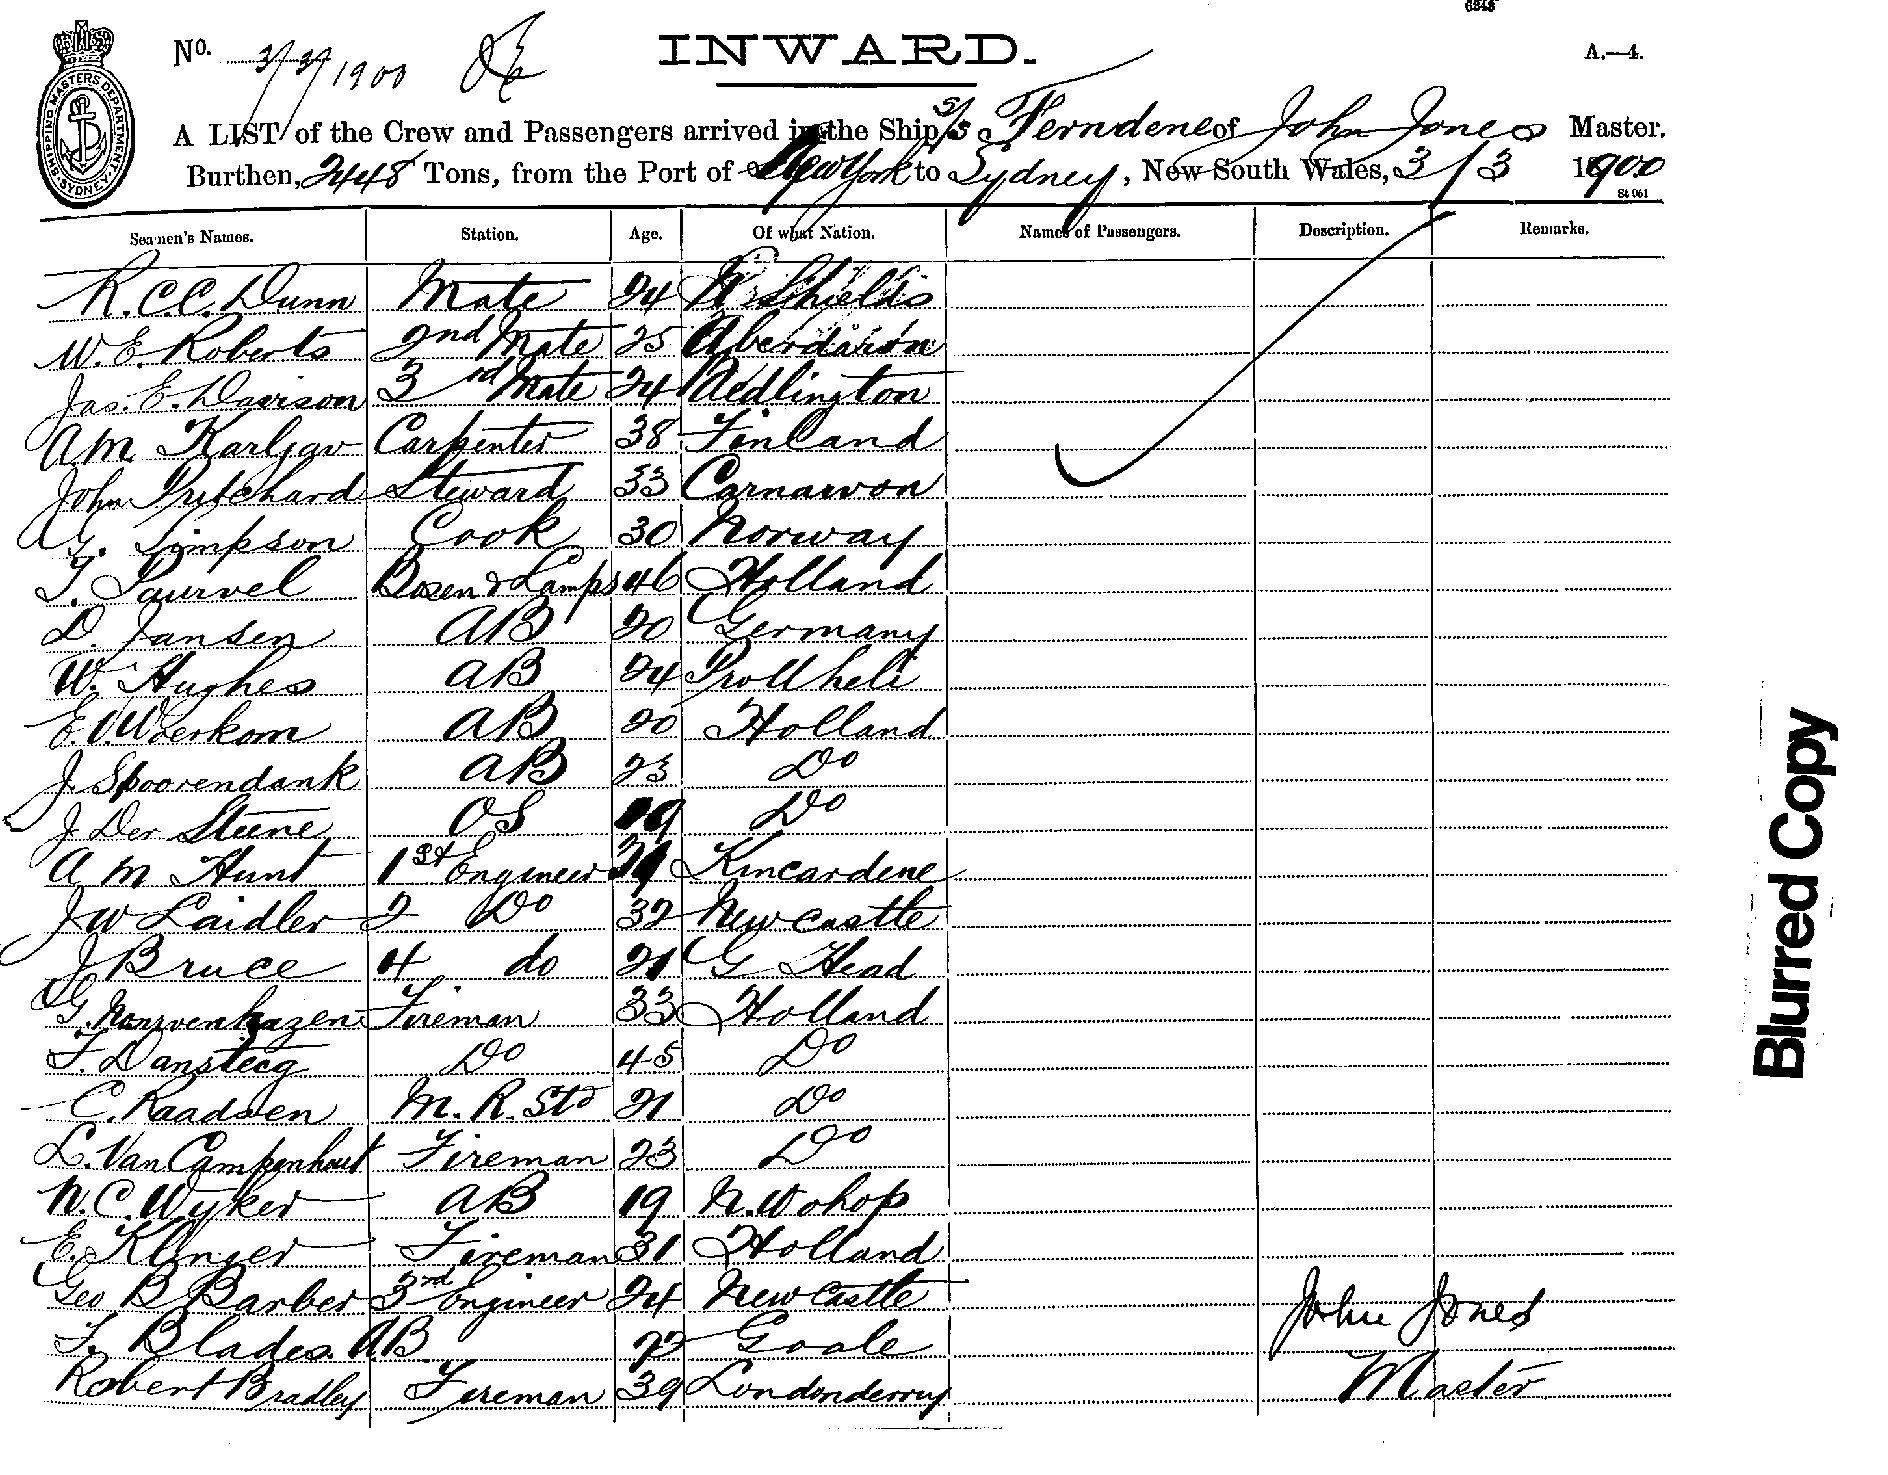 6348
No. 3/3/1900
INWARD.
A.—4.
SHIPPING MASTERS DEPARTMENT SYDNEY
A LIST of the Crew and Passengers arrived in the Ship S/S Ferndene of John Jones Master.
Burthen, 2448 Tons, from the Port of New York to Sydney, New South Wales, 3/3 1900
St 061
Seamen's Names. Station. Age. Of what Nation. Names of Passengers. Description. Remarks.
R.C.C. Dunn Mate 24 N. Shields
W.E. Roberts 2nd Mate 25 Aberdaron
Jas. E. Davison 3rd Mate 24 Bedlington
A M Karljav Carpenter 38 Finland
John Pritchard Steward 33 Carnarvon
G. Simpson Cook 30 Norway
T. Pauvel Bosen & Lamps 46 Holland
D. Jansen AB 20 Germany
W. Hughes AB 24 Pwllheli
E. V. Woerkom AB 20 Holland
J. Spoorendank AB 23 Do
J Der Steene OS 19 Do
A M Hunt 1st Engineer Kincardene
J W Laidler 2 Do 32 Newcastle
J Bruce 4 do 21 G Head
G. Fireman 33 Holland
F. Dansteeg Do 45 Do
C. Raadsen M. R. Std 21 Do
L. Van Campenhout Fireman 23 Do
N. C. Wyker AB 19 N. Wohop
E. Klinger Fireman 31 Holland
Geo B Barber 3rd Engineer 24 Newcastle
F. Blades. AB 22 Goole
Robert Bradley Fireman 39 Londonderry
John Jones
Master
Blurred Copy